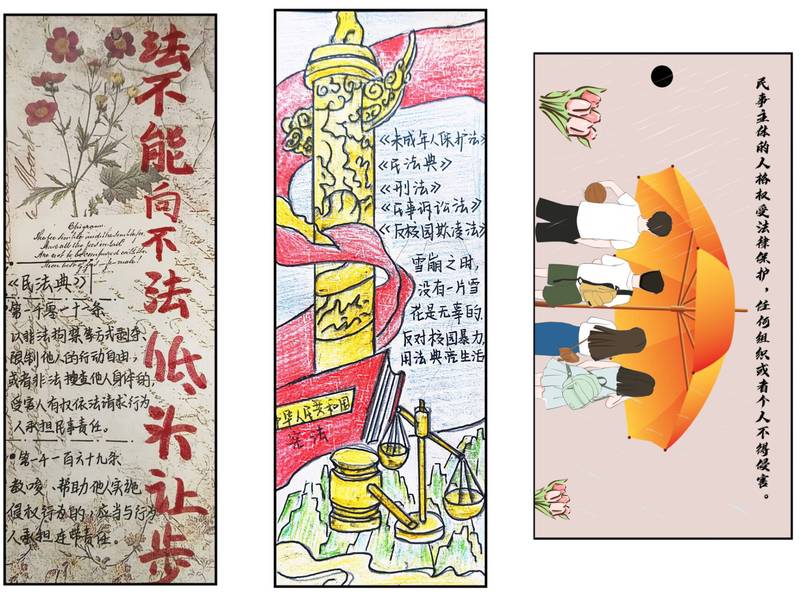 法不能向不法低头让步
Epigram
《民法典》
第一千零一十一条
以非法拘禁等方式剥夺、
限制他人的行动自由,
或者非法搜查他人身体的,
受害人有权依法请求行为
人承担民事责任。
第一千一百六十九条
教唆、帮助他人实施
侵权行为的,应当与行为
人承担连带责任。
《未成年人保护法》
《民法典》
《刑法》
《民事诉讼法》
《反校园欺凌法》
雪崩之时,
没有一片雪
花是无辜的.
反对校园暴力,
用法典营生活
中华人民共和国
宪法
民事主体的人格权受法律保护,任何组织或者个人不得侵害。